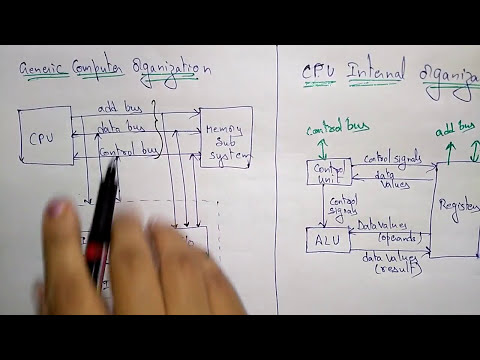 Generic Computer Organization
add bus
CPU
data bus
control bus
Memory
Sub
system
CPU Internal
control bus
add bus
control signals
Control
unit
data
values
control
signals
ALU
Data values
(operands)
data values
(result)